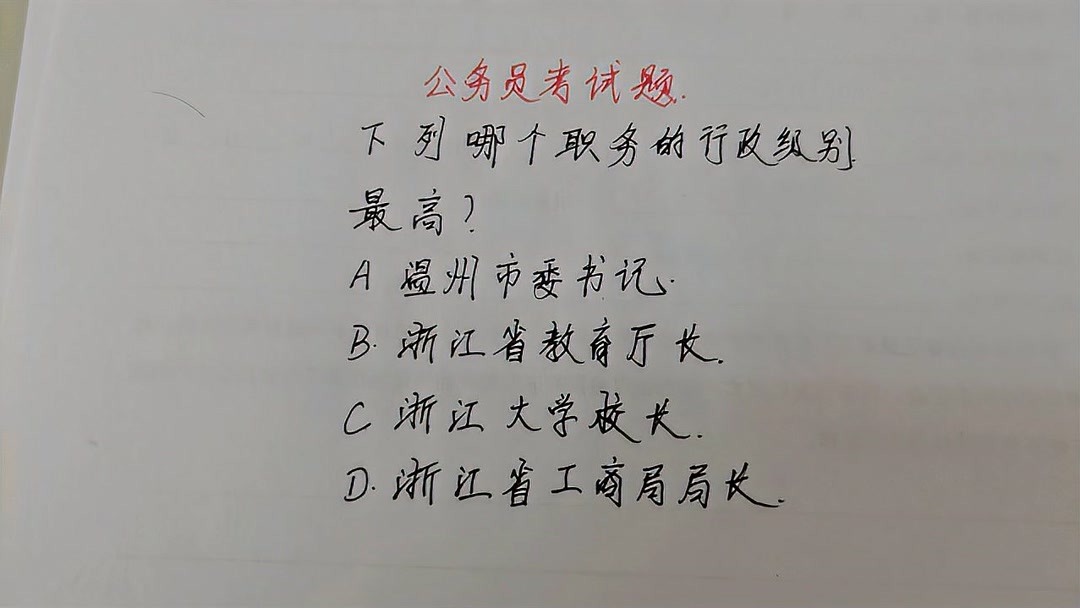 公务员考试题.
下列哪个职务的行政级别
最高?
A 温州市委书记.
B. 浙江省教育厅长.
C 浙江大学校长.
D. 浙江省工商局局长.